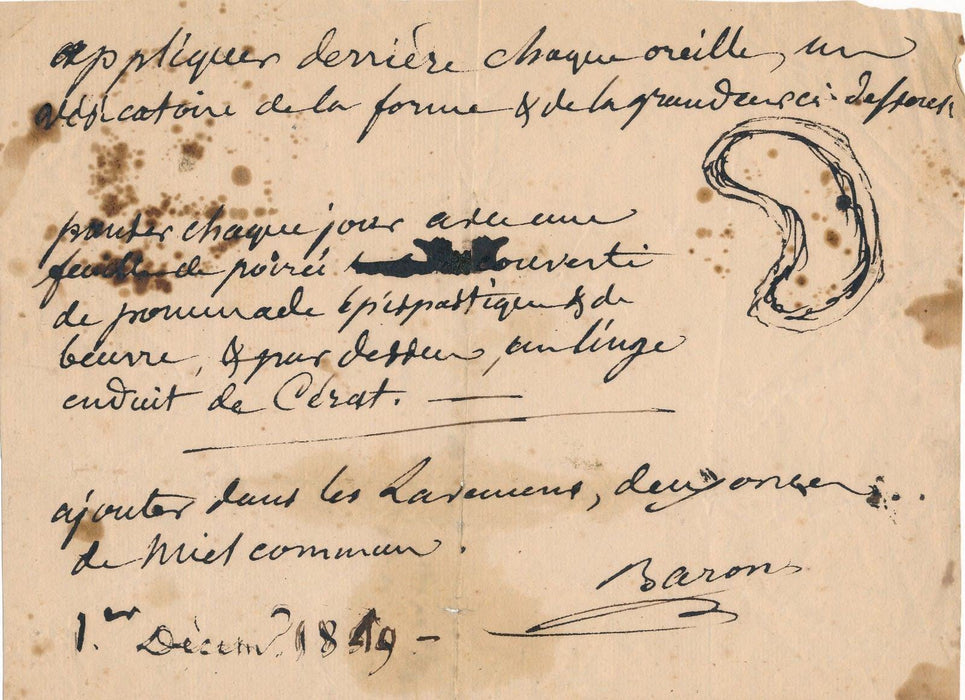 appliquer derrière chaque oreille, un
vésicatoire de la forme & de la grandeur ci-dessous
panser chaque jour avec une
feuille de poirée couverte
de pommade épispastique & de
beurre, & par dessus, un linge
enduit de Cérat. —
ajouter dans les Lavemens, deux onces
de Miel commun.
Baron
1.er Décemb. 1819 -